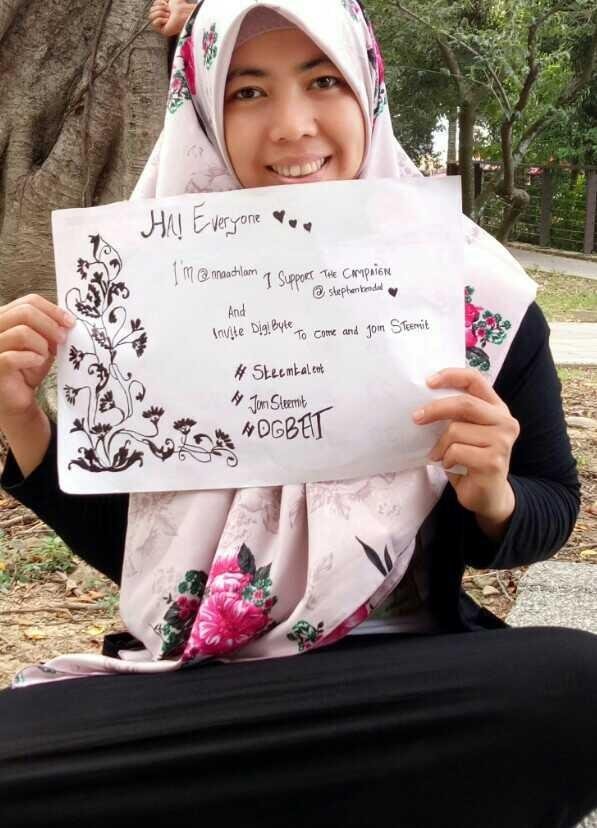 HAI Everyone
I'm @nnaachlam I SUPPORT THE CAMPAIGN
@stephenkendal
And
Invite DigiByte To come and join STeemit
# Steemtalent
# Join Steemit
# DGBET